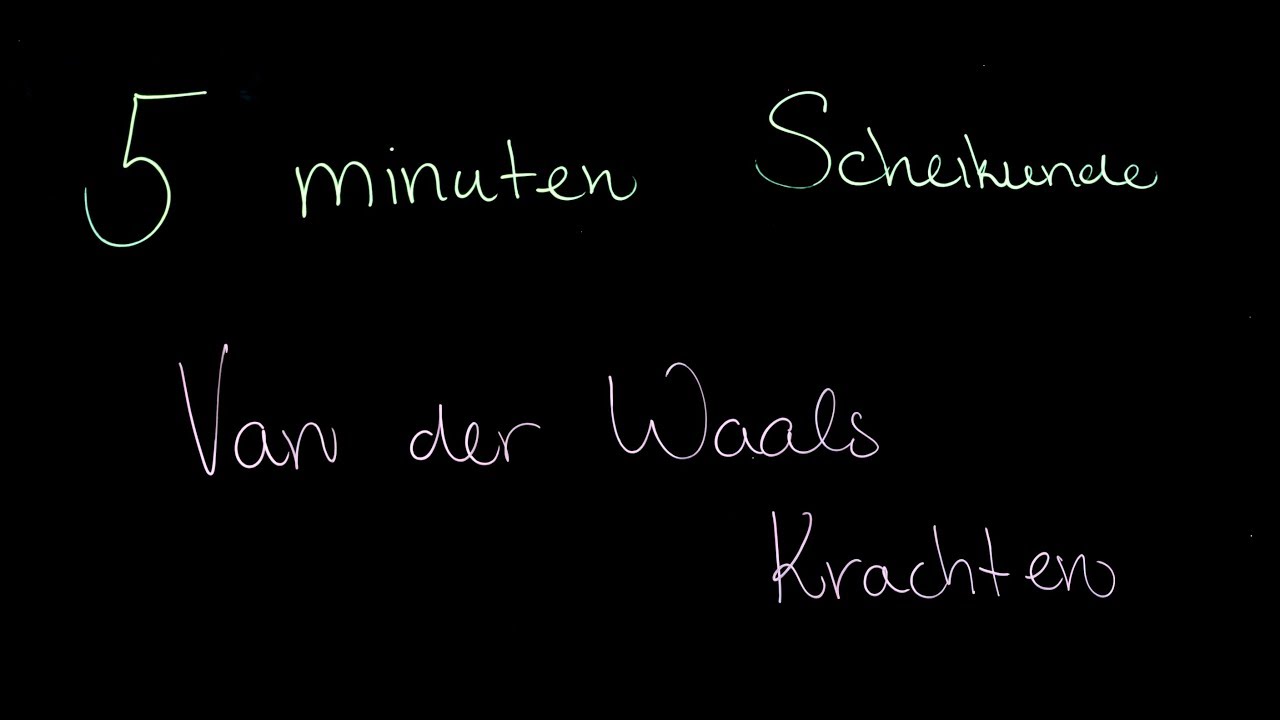 5 minuten Scheikunde
Van der Waals
Krachten